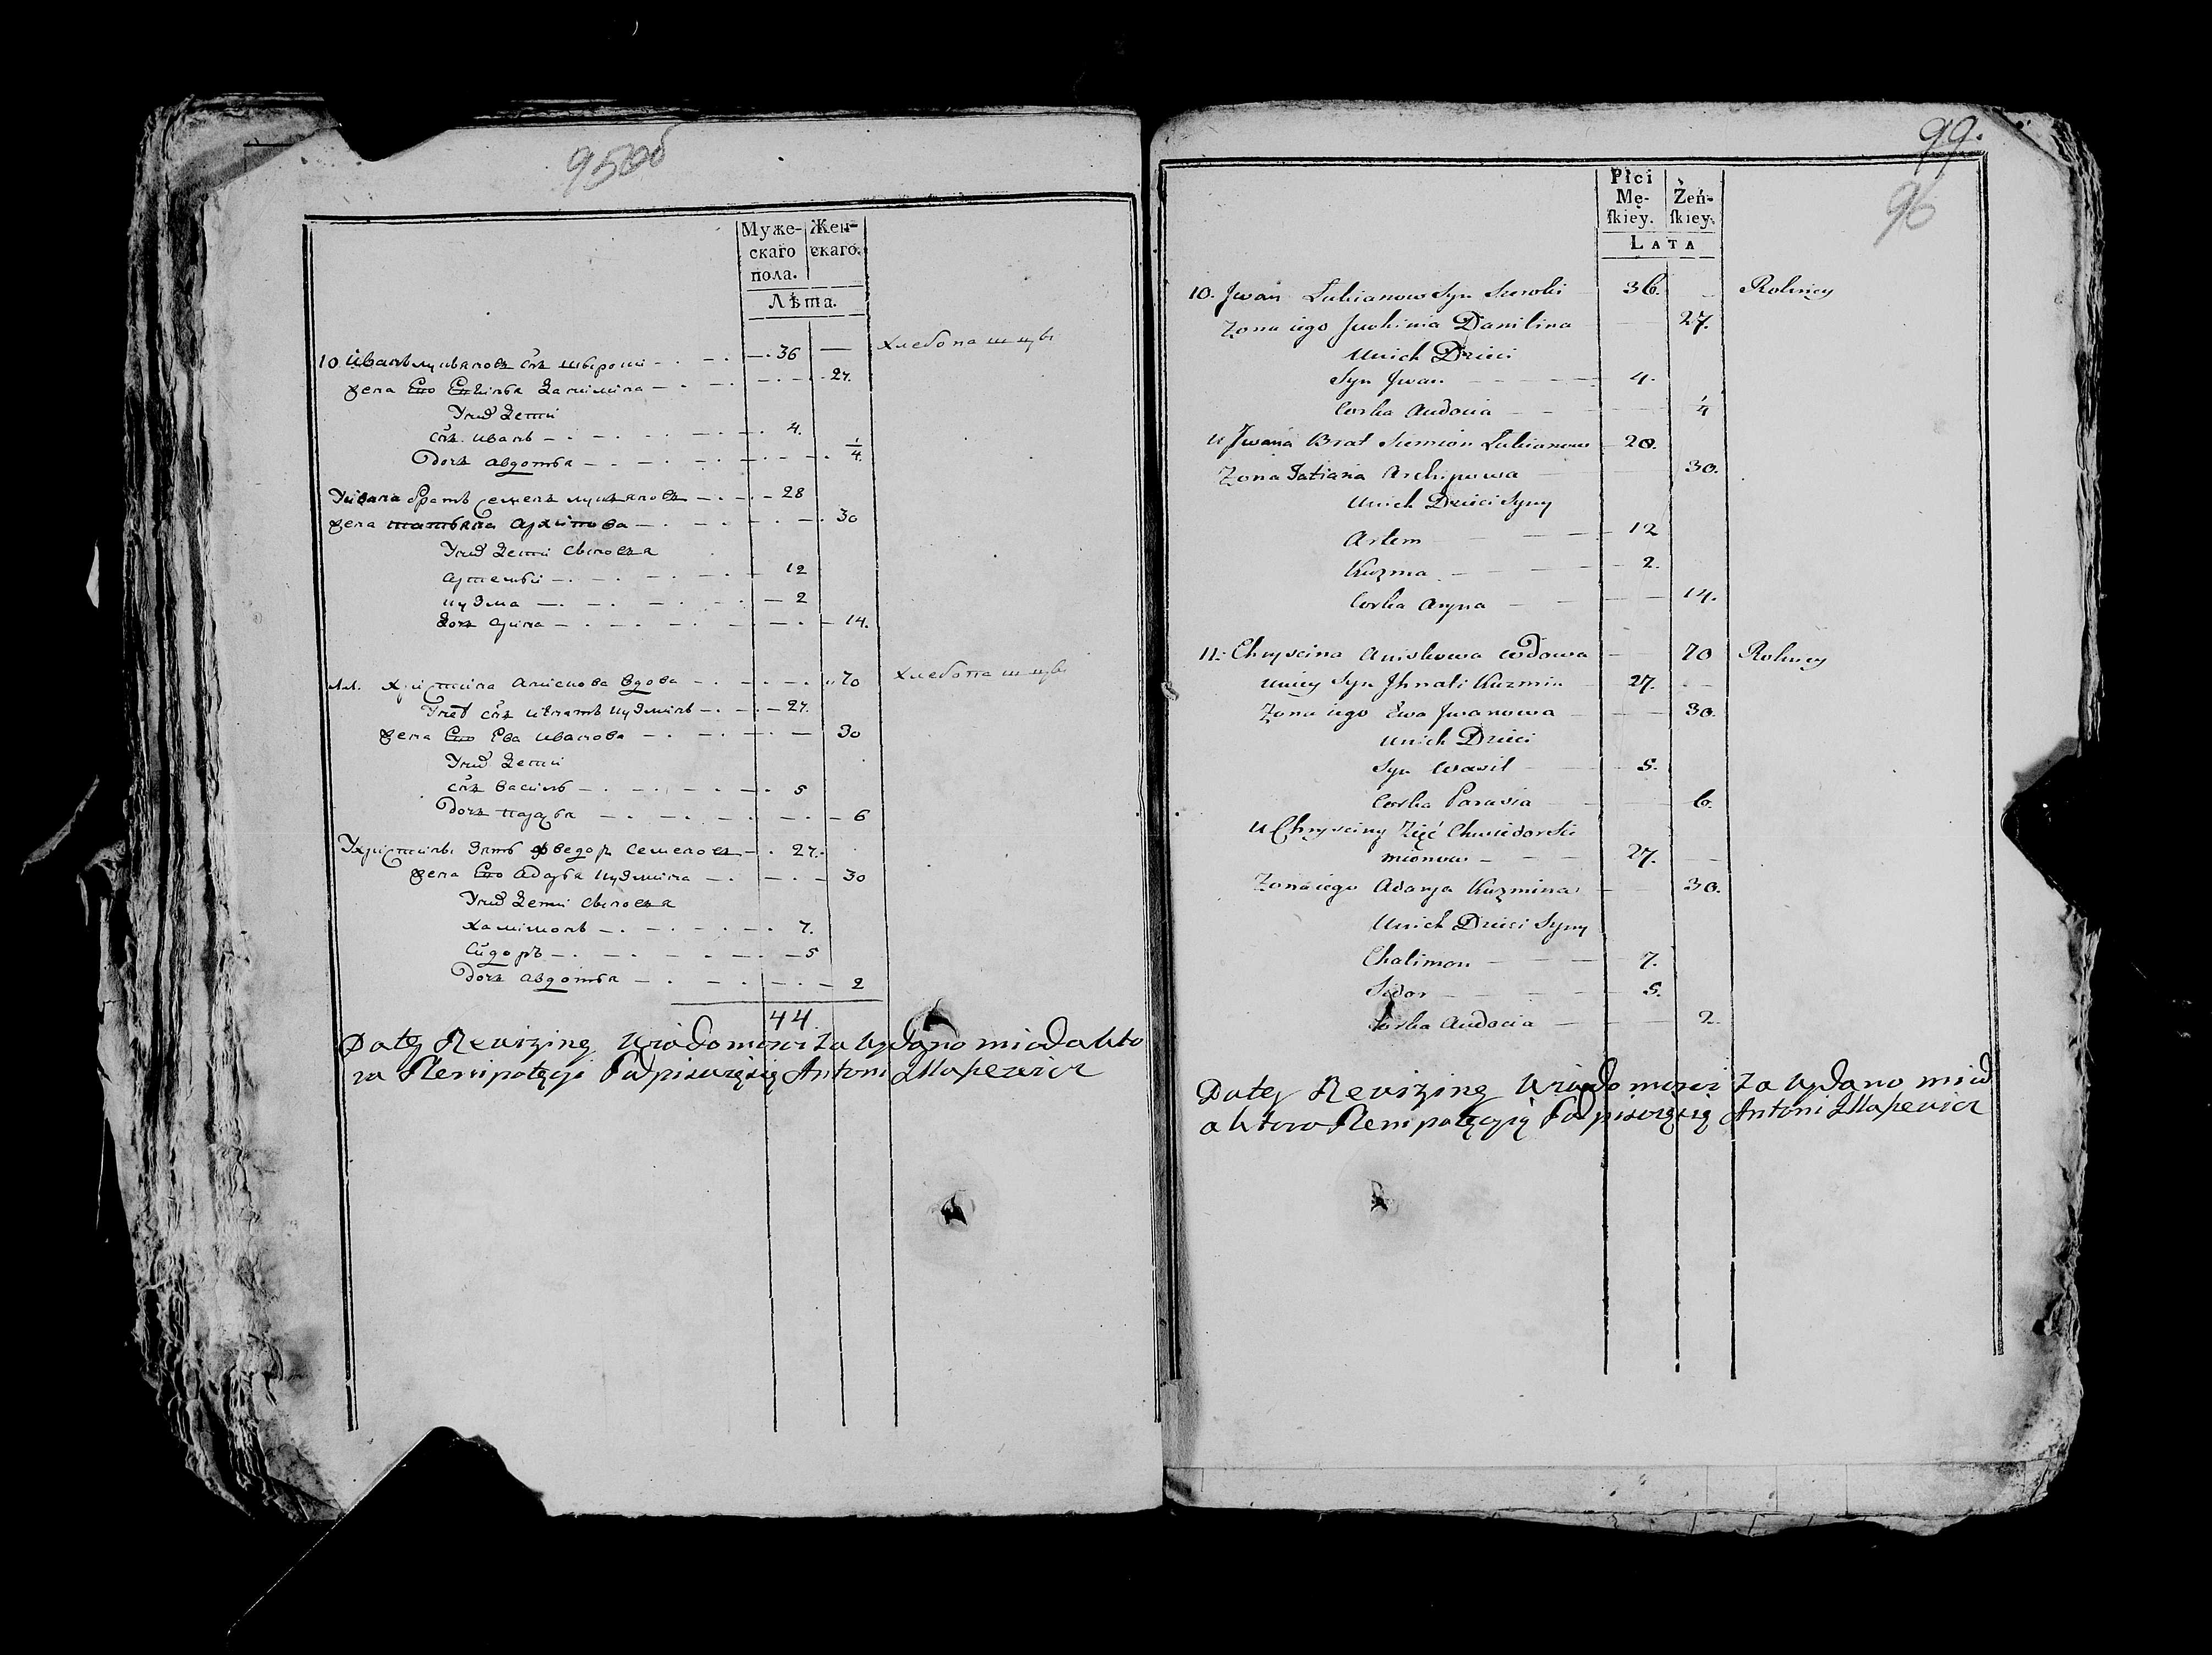 95об
Муже-
скаго
пола.
Жен-
скаго.
Лѣта.
10 Иванъ лукьяновъ снъ 36 хлебопашцы
жена Его Данилина 27.
У них дети
снъ иванъ 4.
дочъ авдотья 1/4
У ивана братъ семенъ лукьяновъ 28
жена татьяна архипова 30
У них дети сыновья
артемьи 12
кузма 2
дочъ арина 14.
11. христина анискова вдова 70 хлебопашцы
У неѣ снъ игнатъ кузминъ 27.
жена Его Ева иванова 30
У них дети
снъ василь 5
дочъ 6
У христины зять федоръ семеновъ 27.
жена Его адарья кузмина 30
У них дети сыновья
халимонъ 7.
сидоръ 5
дочъ авдотья 2
44.
Do tey Rewizyiney Wiadomosci za wydano mi od akto
ra Plenipotęcyi Podpisuięsię Antoni
99.
96
Płci
Mę-
skiey.
Żeń-
skiey.
LATA
10. Jwan Lukianow Syn 36. Rolnicy
Zona iego Danilina 27.
Unich Dzieci
Syn Jwan 4.
Corka Audocia 1/4
U Jwana Brat Siemion Lukianow 28.
Zona Tatiana Archipowa 30.
Unich Dzieci Syny
Artem 12
Kuzma 2.
Corka Aryna 14.
11. Chryscina Aniskowa Wdowa 70 Rolnicy
Uniey Syn Jhnati Kuzmin 27.
Zona iego Ewa Jwanowa 30.
Unich Dzieci
Syn Wasil 5.
Corka Parasia 6.
U Chrysciny Zięć Chwiedor Sie
mionow 27.
Zona iego Adarya Kuzmina 30.
Unich Dzieci Syny
Chalimon 7.
Sidor 5.
Corka Audocia 2.
Do tey Rewizyiney Wiadomosci za wydano mi od
aktora Plenipotęcyią Podpisuięsię Antoni